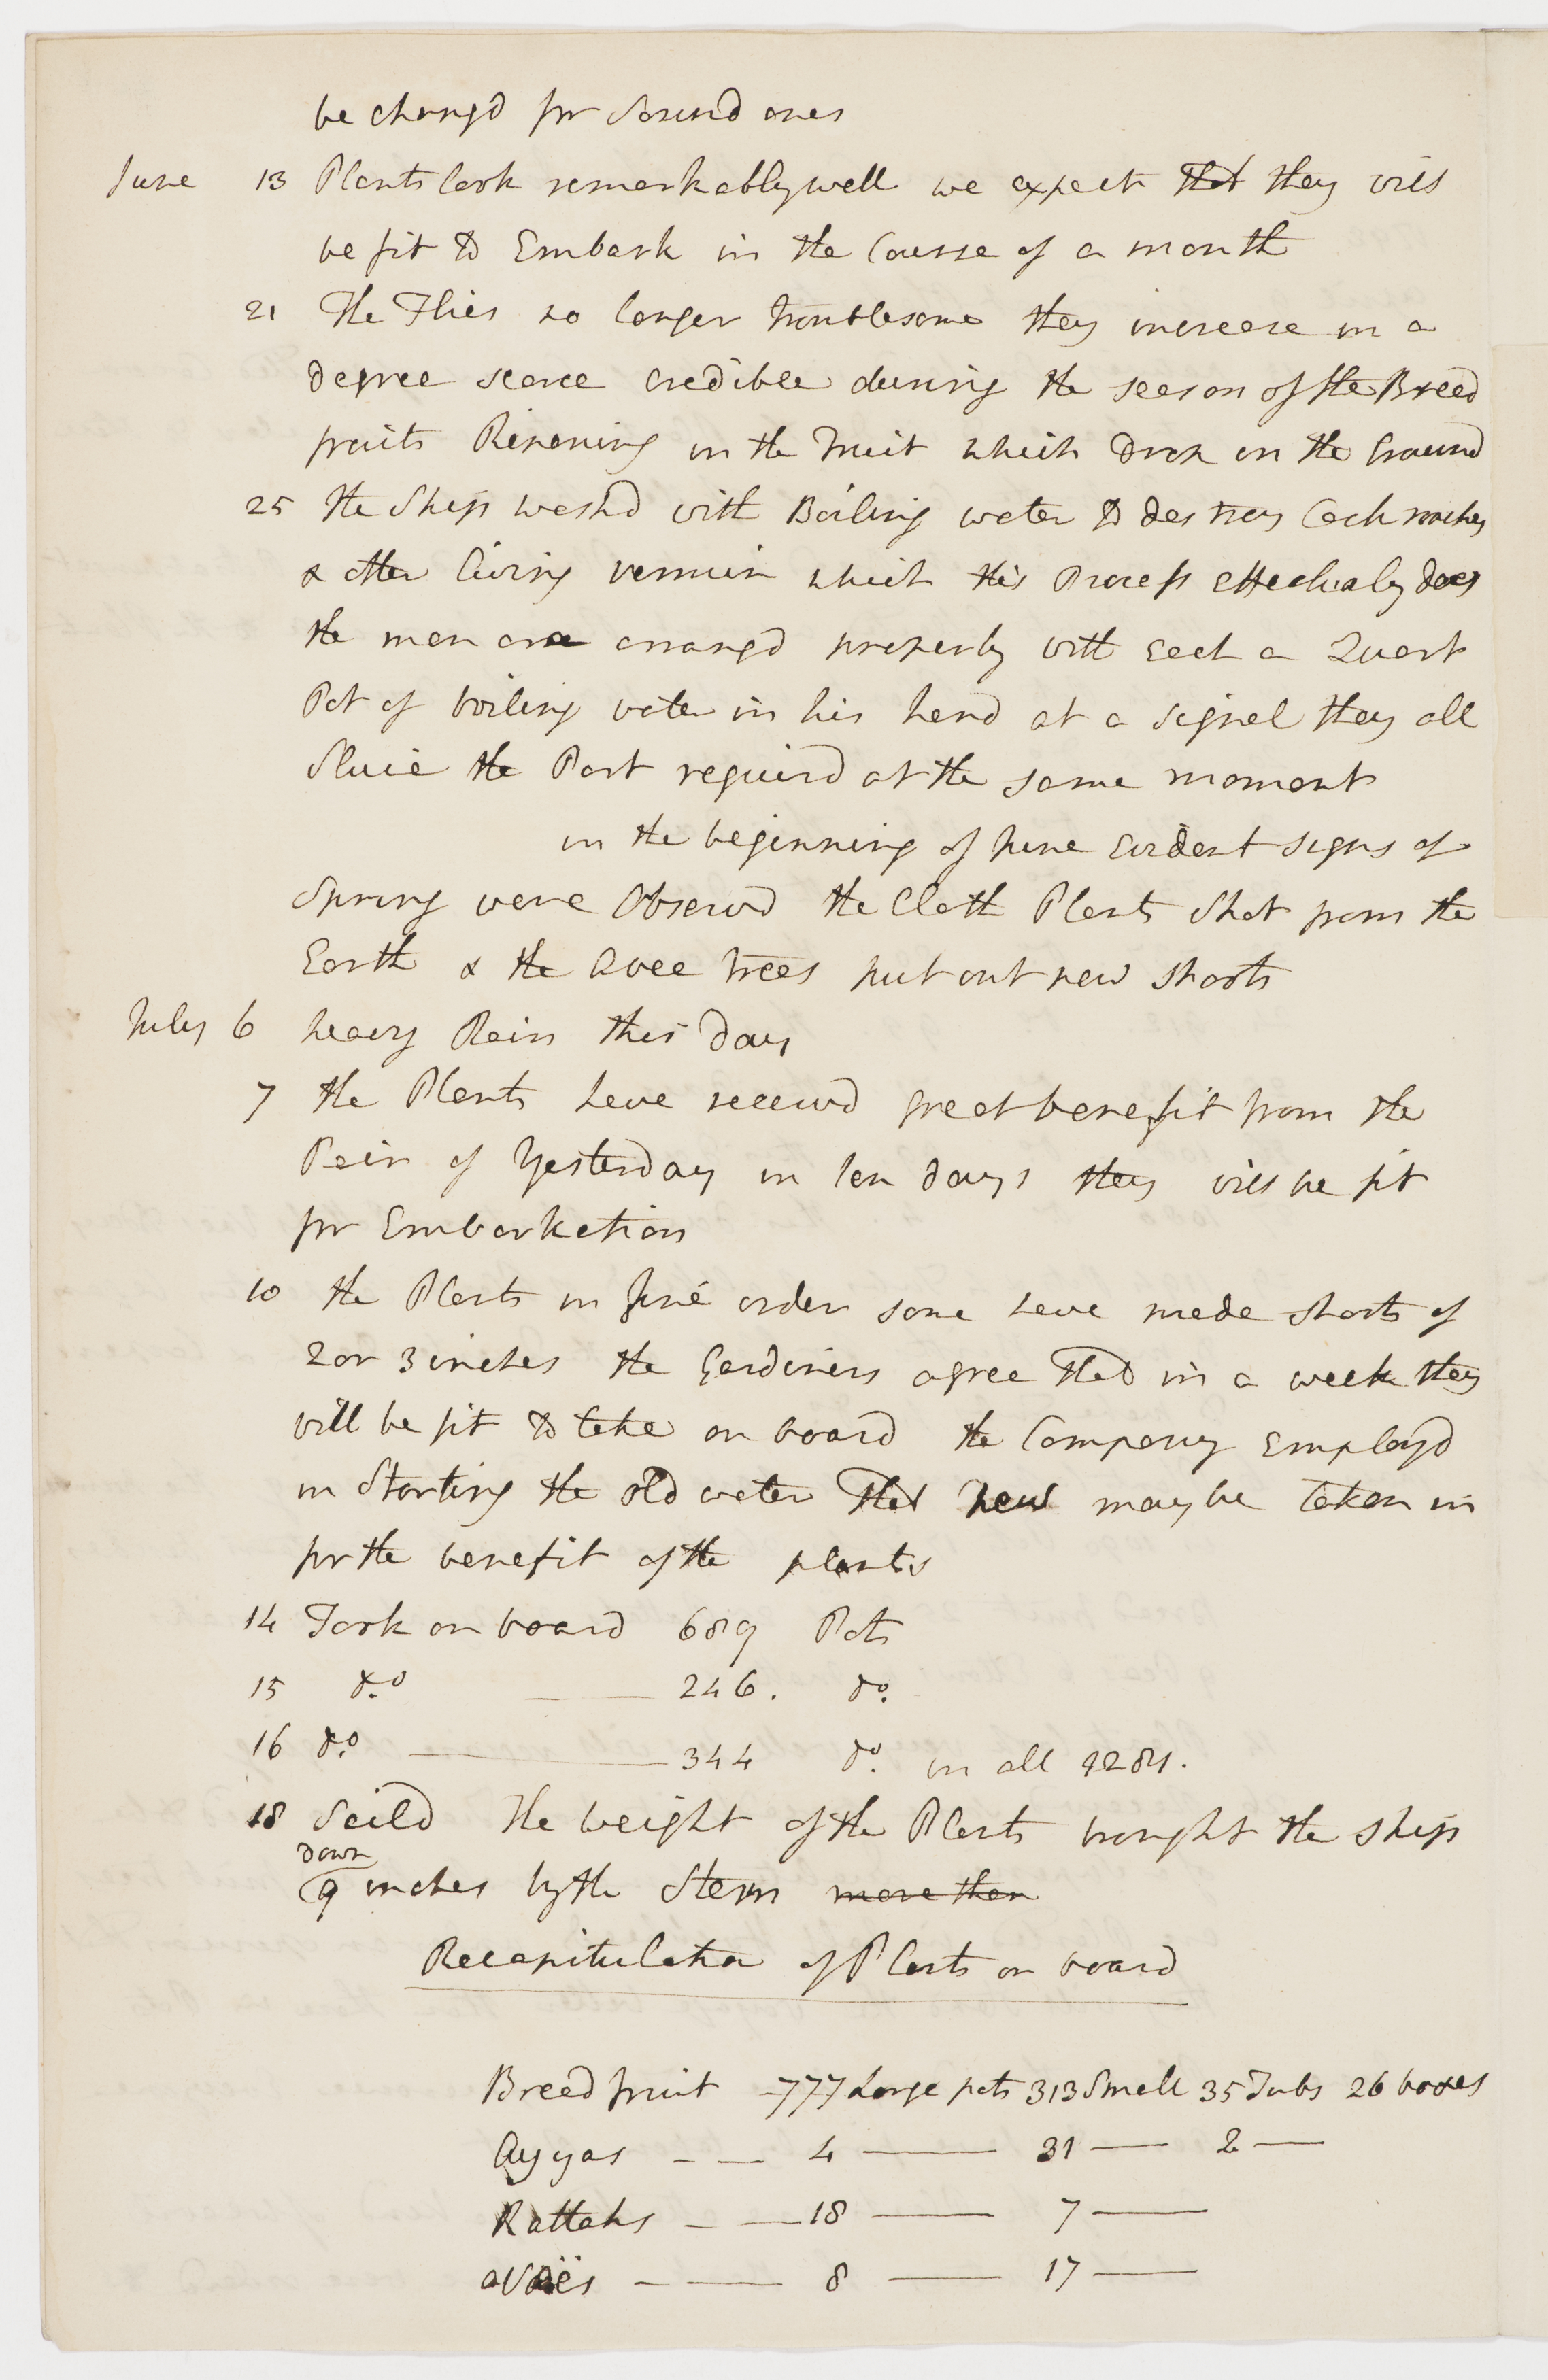 be changd for Sound ones
June 13 Plants look remarkably well we expect that they will
be fit to Embark in the Course of a month
21 The Flies no longer troublesome they increase in a
degree scarce credible during the season of the Bread
fruits Ripening in the Fruit which Drop on the Ground
25 the Ship washd with Boiling water to destroy Cockroaches
& other living vermin which this Process effectualy does
the men are arrangd properly with each a Quart
Pot of boiling water in his hand at a signal they all
Sluice the Part requird at the same moment
in the beginning of June Evident signs of
Spring were Observd the Cloth Plants Shot from the
Earth & the Avee trees put out new shoots
July 6 heavy Rain this day
7 the Plants have receivd great benefit from the
Rain of Yesterday in ten days they will be fit
for Embarkation
10 the Plants in fine order some have made shoots of
2 or 3 inches the Gardiners agree that in a week they
will be fit to take on board the Company Employd
in Starting the old water that new may be taken in
for the benefit of the plants
14 Took on board 689 Pots
15 do — — 246. do.
16 do — 344 do. in all 1281.
18 Saild The weight of the Plants brought the ship
down
9 inches by the Stern more than
Recapitulation of Plants on board
Breadfruit — 777 Large pots 313 Small 35 Tubs 26 boxes
Ayyas — — 4 — 31 — 2 —
Rattahs — — 18 — 7 —
— — 8 — 17 —